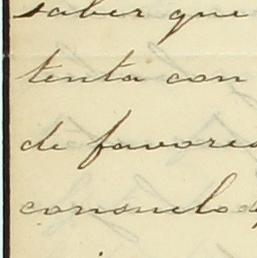 saber que
tenta con
de favores
consuelo